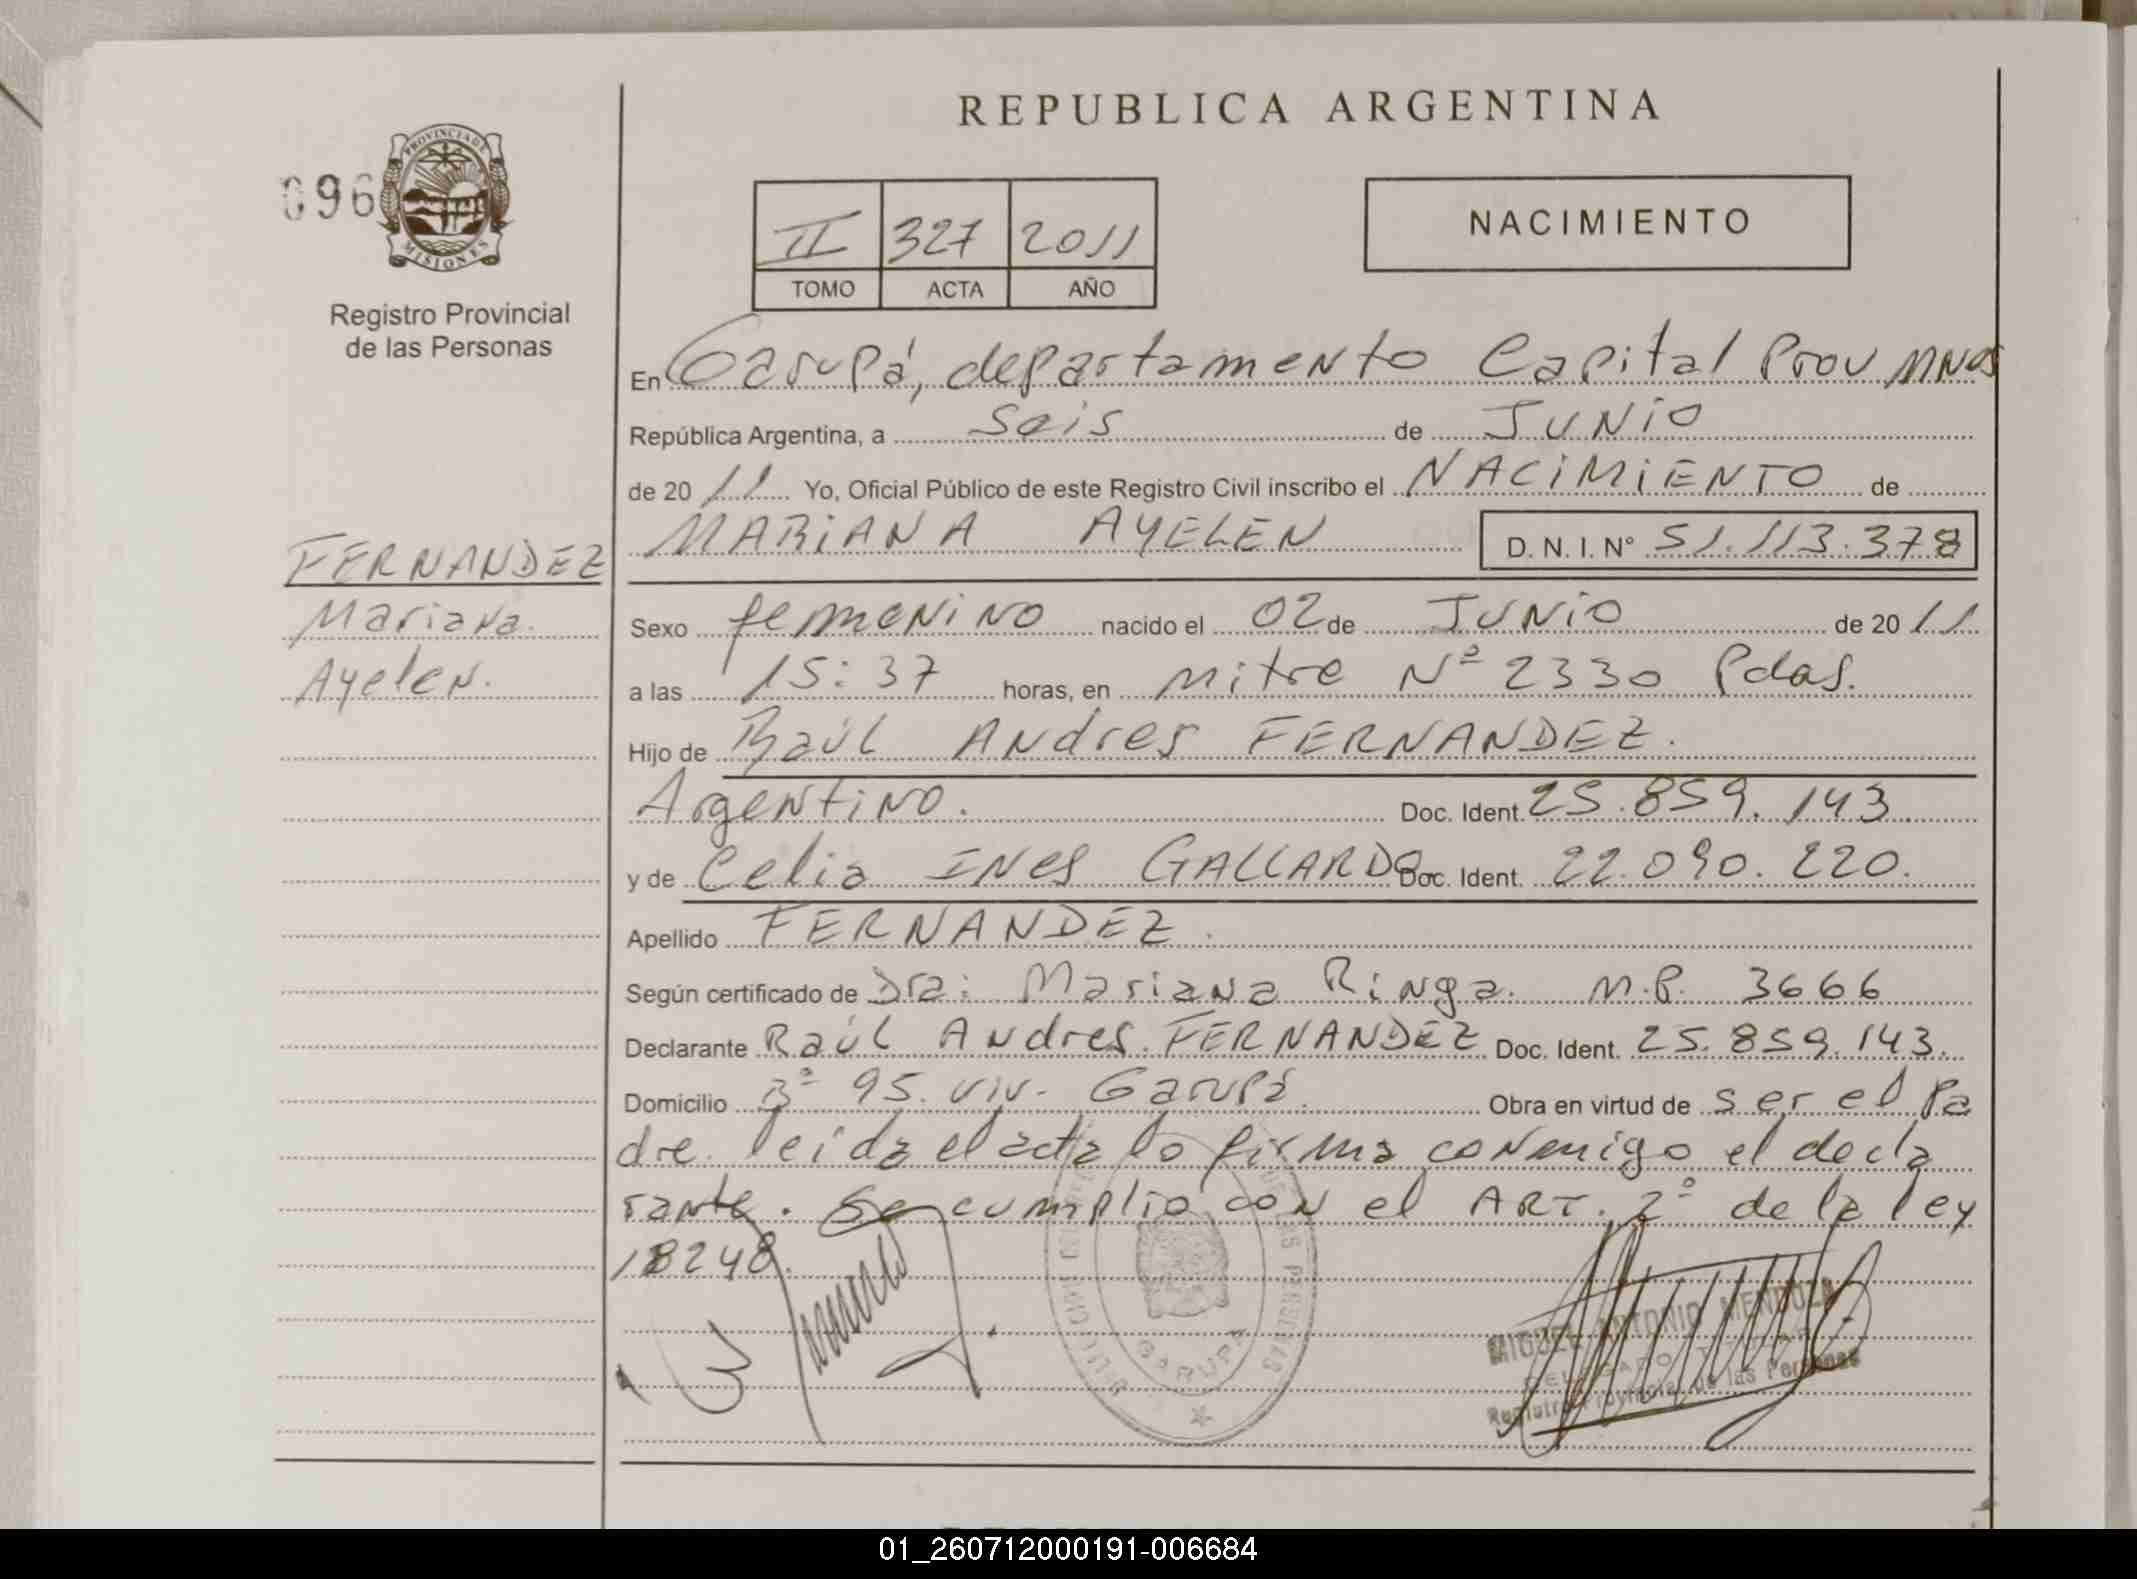 REPUBLICA ARGENTINA
096
PROVINCIA DE
MISIONES
Registro Provincial
de las Personas
II 327 2011
TOMO ACTA AÑO
NACIMIENTO
En Garupá, departamento Capital Prov MNES
República Argentina, a seis de JUNIO
de 2011 Yo, Oficial Público de este Registro Civil inscribo el NACIMIENTO de
MARIANA AYELEN D. N. I. N° 51.113.378
FERNANDEZ
Mariana.
Ayelen.
Sexo femenino nacido el 02 de JUNIO de 2011
a las 15:37 horas, en mitre Nº 2330 Pdas.
Hijo de Raúl Andres FERNANDEZ.
Argentino. Doc. Ident. 25.859.143
y de Celia INES GALLARDO Doc. Ident. 22.090.220.
Apellido FERNANDEZ.
Según certificado de Dra: Mariana Ringa. M.P. 3666
Declarante Raúl Andres FERNANDEZ Doc. Ident. 25.859.143.
Domicilio Bº 95. viv. Garupá. Obra en virtud de ser el Pa
dre. leida el acta lo firma conmigo el decla
rante. Se cumplio con el ART. 2º de la ley
18248.
GARUPA
MIGUEL ANTONIO MENDOZA
DELEGADO TITULAR
Registro Provincial de las Personas
01_260712000191-006684